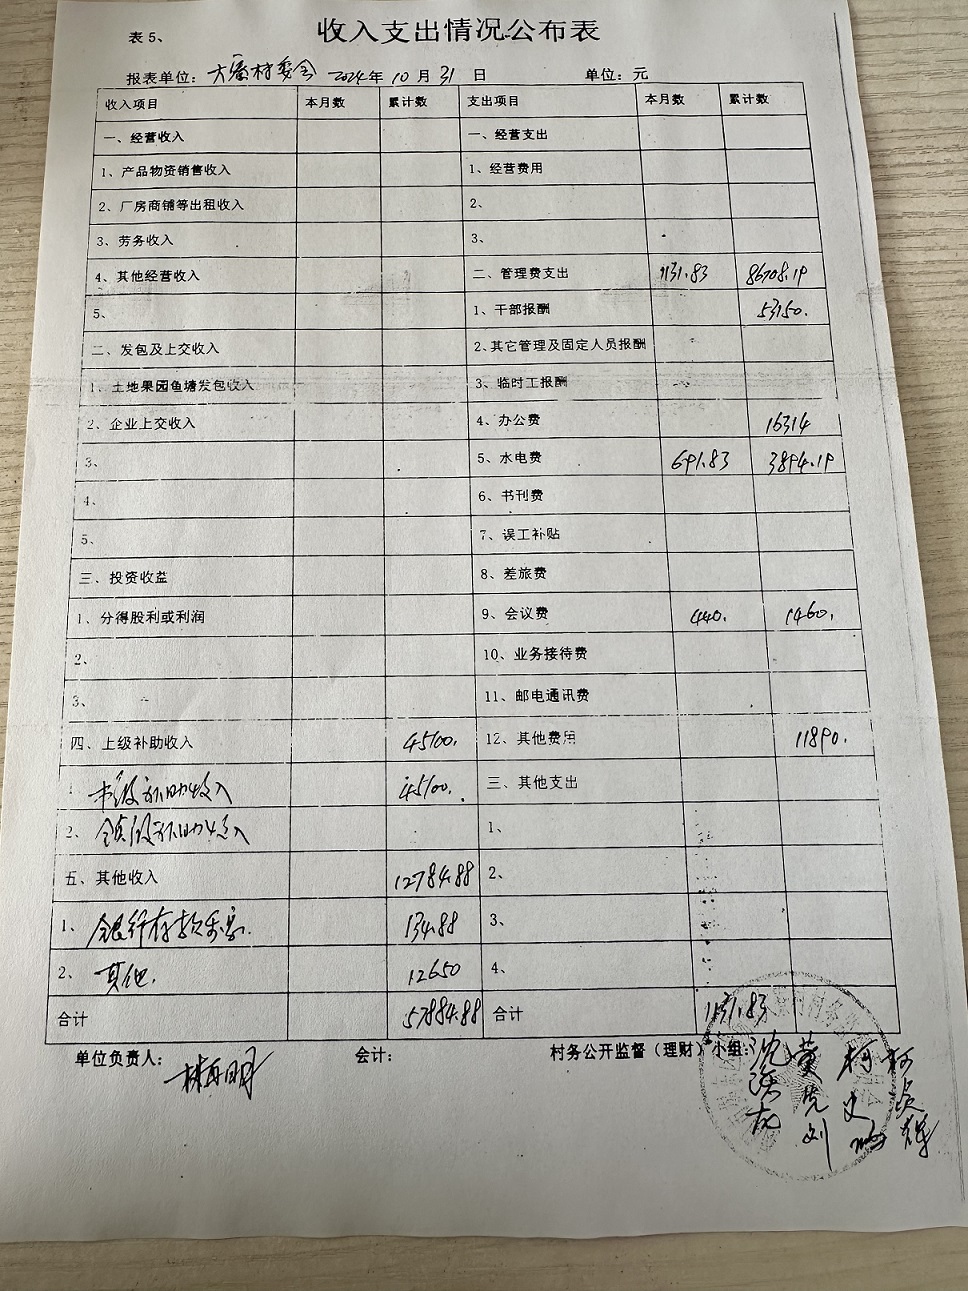 表5、
收入支出情况公布表
报表单位：大寮村委会 2024年10月31日 单位：元
收入项目 本月数 累计数 支出项目 本月数 累计数
一、经营收入 一、经营支出
1、产品物资销售收入 1、经营费用
2、厂房商铺等出租收入 2、
3、劳务收入 3、
4、其他经营收入 二、管理费支出 1131.83 86708.19
5、 1、干部报酬 53150.
二、发包及上交收入 2、其它管理及固定人员报酬
1、土地果园鱼塘发包收入 3、临时工报酬
2、企业上交收入 4、办公费 16314
3、 5、水电费 691.83 3894.19
4、 6、书刊费
5、 7、误工补贴
三、投资收益 8、差旅费
1、分得股利或利润 9、会议费 440. 1460.
2、 10、业务接待费
3、 11、邮电通讯费
四、上级补助收入 45100. 12、其他费用 11890.
1、市级补助收入 45100. 三、其他支出
2、镇级补助收入 1、
五、其他收入 12784.88 2、
1、银行存款利息. 134.88 3、
2、其他. 12650 4、
合计 57884.88 合计 1131.83
单位负责人： 会计： 村务公开监督（理财）小组：